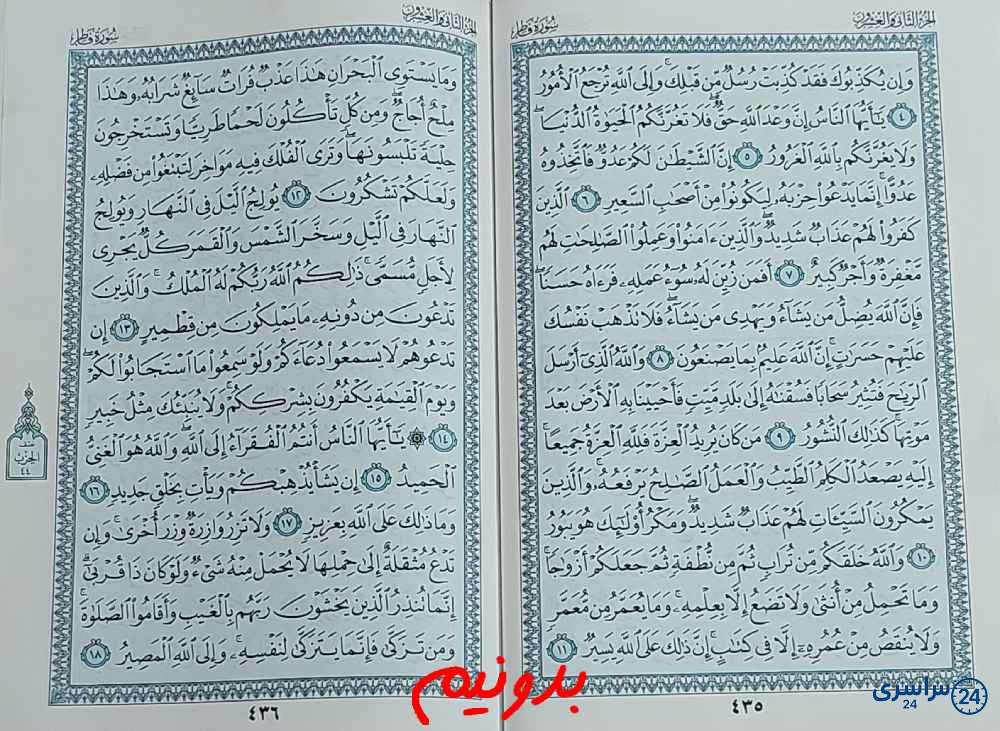 الجزء الثاني والعشرون
سورة فاطر
وَإِن يُكَذِّبُوكَ فَقَدْ كُذِّبَتْ رُسُلٌ مِّن قَبْلِكَ ۚ وَإِلَى اللَّهِ تُرْجَعُ الْأُمُورُ
﴿٤﴾ يَا أَيُّهَا النَّاسُ إِنَّ وَعْدَ اللَّهِ حَقٌّ ۖ فَلَا تَغُرَّنَّكُمُ الْحَيَاةُ الدُّنْيَا ۖ
وَلَا يَغُرَّنَّكُم بِاللَّهِ الْغَرُورُ ﴿٥﴾ إِنَّ الشَّيْطَانَ لَكُمْ عَدُوٌّ فَاتَّخِذُوهُ
عَدُوًّا ۚ إِنَّمَا يَدْعُو حِزْبَهُ لِيَكُونُوا مِنْ أَصْحَابِ السَّعِيرِ ﴿٦﴾ الَّذِينَ
كَفَرُوا لَهُمْ عَذَابٌ شَدِيدٌ ۖ وَالَّذِينَ آمَنُوا وَعَمِلُوا الصَّالِحَاتِ لَهُم
مَّغْفِرَةٌ وَأَجْرٌ كَبِيرٌ ﴿٧﴾ أَفَمَن زُيِّنَ لَهُ سُوءُ عَمَلِهِ فَرَآهُ حَسَنًا ۖ
فَإِنَّ اللَّهَ يُضِلُّ مَن يَشَاءُ وَيَهْدِي مَن يَشَاءُ ۖ فَلَا تَذْهَبْ نَفْسُكَ
عَلَيْهِمْ حَسَرَاتٍ ۚ إِنَّ اللَّهَ عَلِيمٌ بِمَا يَصْنَعُونَ ﴿٨﴾ وَاللَّهُ الَّذِي أَرْسَلَ
الرِّيَاحَ فَتُثِيرُ سَحَابًا فَسُقْنَاهُ إِلَىٰ بَلَدٍ مَّيِّتٍ فَأَحْيَيْنَا بِهِ الْأَرْضَ بَعْدَ
مَوْتِهَا ۚ كَذَٰلِكَ النُّشُورُ ﴿٩﴾ مَن كَانَ يُرِيدُ الْعِزَّةَ فَلِلَّهِ الْعِزَّةُ جَمِيعًا ۚ
إِلَيْهِ يَصْعَدُ الْكَلِمُ الطَّيِّبُ وَالْعَمَلُ الصَّالِحُ يَرْفَعُهُ ۚ وَالَّذِينَ
يَمْكُرُونَ السَّيِّئَاتِ لَهُمْ عَذَابٌ شَدِيدٌ ۖ وَمَكْرُ أُولَٰئِكَ هُوَ يَبُورُ
﴿١٠﴾ وَاللَّهُ خَلَقَكُم مِّن تُرَابٍ ثُمَّ مِن نُّطْفَةٍ ثُمَّ جَعَلَكُمْ أَزْوَاجًا ۚ
وَمَا تَحْمِلُ مِنْ أُنثَىٰ وَلَا تَضَعُ إِلَّا بِعِلْمِهِ ۚ وَمَا يُعَمَّرُ مِن مُّعَمَّرٍ
وَلَا يُنقَصُ مِنْ عُمُرِهِ إِلَّا فِي كِتَابٍ ۚ إِنَّ ذَٰلِكَ عَلَى اللَّهِ يَسِيرٌ ﴿١١﴾
٤٣٥
الجزء الثاني والعشرون
سورة فاطر
وَمَا يَسْتَوِي الْبَحْرَانِ هَٰذَا عَذْبٌ فُرَاتٌ سَائِغٌ شَرَابُهُ وَهَٰذَا
مِلْحٌ أُجَاجٌ ۖ وَمِن كُلٍّ تَأْكُلُونَ لَحْمًا طَرِيًّا وَتَسْتَخْرِجُونَ
حِلْيَةً تَلْبَسُونَهَا ۖ وَتَرَى الْفُلْكَ فِيهِ مَوَاخِرَ لِتَبْتَغُوا مِن فَضْلِهِ
وَلَعَلَّكُمْ تَشْكُرُونَ ﴿١٢﴾ يُولِجُ اللَّيْلَ فِي النَّهَارِ وَيُولِجُ
النَّهَارَ فِي اللَّيْلِ وَسَخَّرَ الشَّمْسَ وَالْقَمَرَ كُلٌّ يَجْرِي
لِأَجَلٍ مُّسَمًّى ۚ ذَٰلِكُمُ اللَّهُ رَبُّكُمْ لَهُ الْمُلْكُ ۚ وَالَّذِينَ
تَدْعُونَ مِن دُونِهِ مَا يَمْلِكُونَ مِن قِطْمِيرٍ ﴿١٣﴾ إِن
تَدْعُوهُمْ لَا يَسْمَعُوا دُعَاءَكُمْ وَلَوْ سَمِعُوا مَا اسْتَجَابُوا لَكُمْ ۖ
وَيَوْمَ الْقِيَامَةِ يَكْفُرُونَ بِشِرْكِكُمْ ۚ وَلَا يُنَبِّئُكَ مِثْلُ خَبِيرٍ
﴿١٤﴾ ۞ يَا أَيُّهَا النَّاسُ أَنتُمُ الْفُقَرَاءُ إِلَى اللَّهِ ۖ وَاللَّهُ هُوَ الْغَنِيُّ
الْحَمِيدُ ﴿١٥﴾ إِن يَشَأْ يُذْهِبْكُمْ وَيَأْتِ بِخَلْقٍ جَدِيدٍ ﴿١٦﴾
وَمَا ذَٰلِكَ عَلَى اللَّهِ بِعَزِيزٍ ﴿١٧﴾ وَلَا تَزِرُ وَازِرَةٌ وِزْرَ أُخْرَىٰ ۚ وَإِن
تَدْعُ مُثْقَلَةٌ إِلَىٰ حِمْلِهَا لَا يُحْمَلْ مِنْهُ شَيْءٌ وَلَوْ كَانَ ذَا قُرْبَىٰ ۗ
إِنَّمَا تُنذِرُ الَّذِينَ يَخْشَوْنَ رَبَّهُم بِالْغَيْبِ وَأَقَامُوا الصَّلَاةَ ۚ
وَمَن تَزَكَّىٰ فَإِنَّمَا يَتَزَكَّىٰ لِنَفْسِهِ ۚ وَإِلَى اللَّهِ الْمَصِيرُ ﴿١٨﴾
٤٣٦
الحزب
٤٤
بدونیم
سراسری
24
24